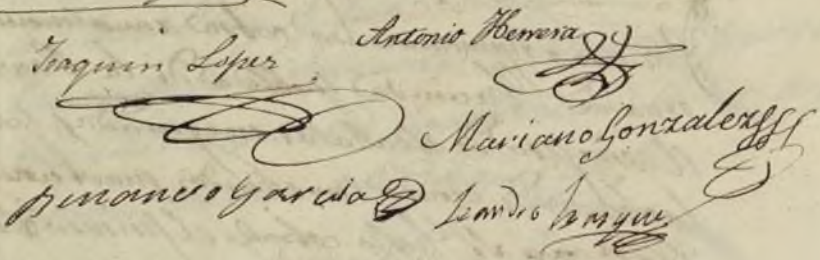 Joaquin Lopez
Antonio Herrera
Mariano Gonzalez
Garcia
Leandro